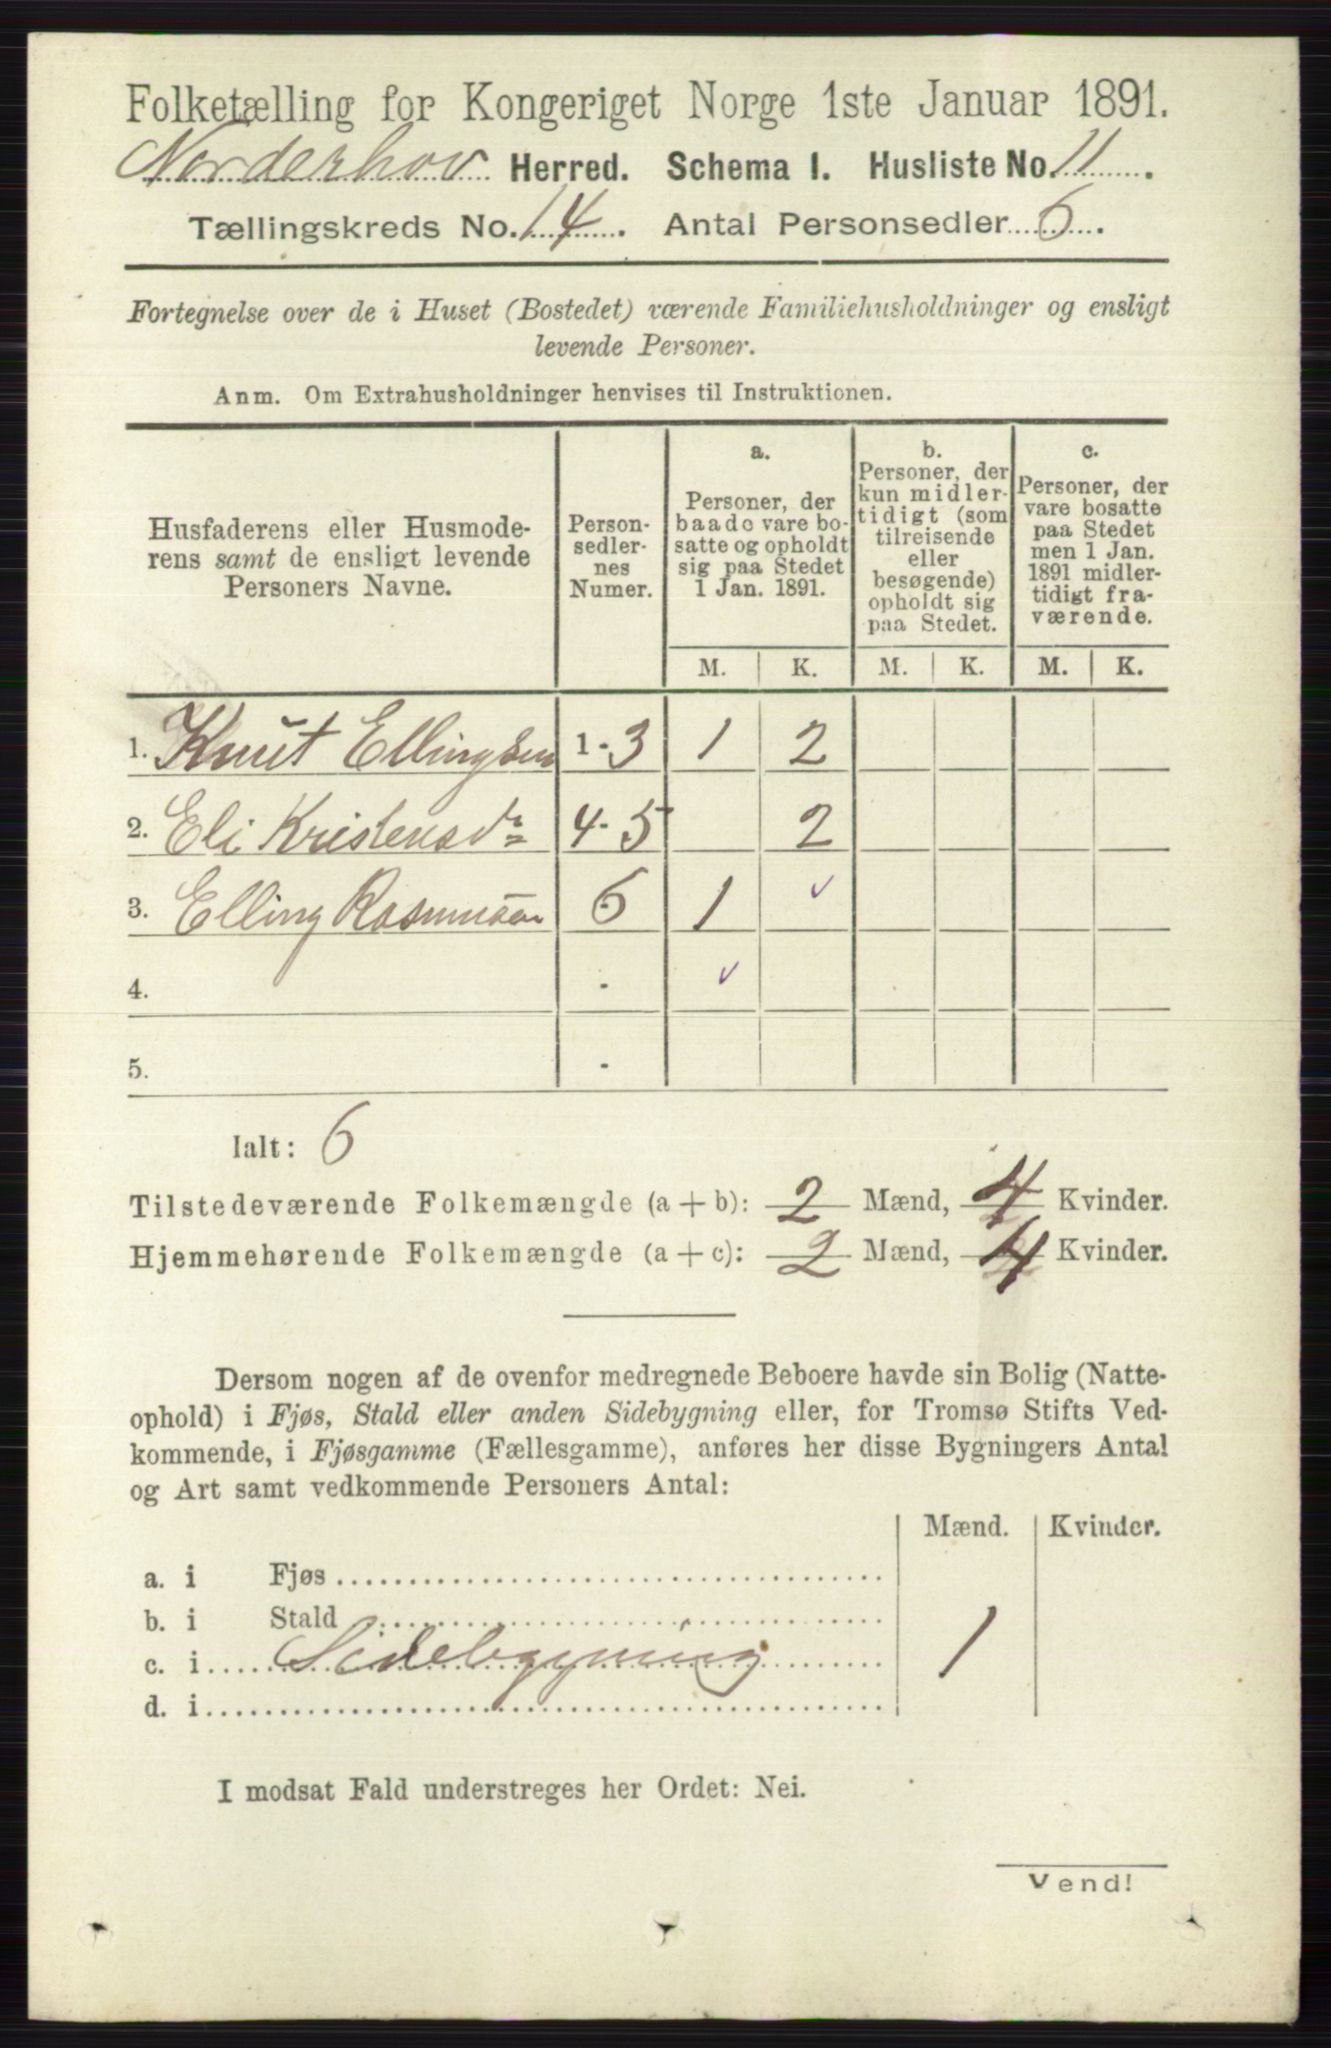 Folketælling for Kongeriget Norge 1ste Januar 1891.
Norderhov Herred. Schema I. Husliste No. 11.
Tællingskreds No. 14. Antal Personsedler 6.
Fortegnelse over de i Huset (Bostedet) værende Familiehusholdninger og ensligt
levende Personer.
Anm. Om Extrahusholdninger henvises til Instruktionen.
Husfaderens eller Husmode-
rens samt de ensligt levende
Personers Navne.
Person-
sedler-
nes
Numer.
a.
Personer, der
baade vare bo-
satte og opholdt
sig paa Stedet
1 Jan. 1891.
b.
Personer, der
kun midler-
tidigt (som
tilreisende
eller
besøgende)
opholdt sig
paa Stedet.
c.
Personer, der
vare bosatte
paa Stedet
men 1 Jan.
1891 midler-
tidigt fra-
værende.
M. K. M. K. M. K.
1. Knut Ellingsen 1-3 1 2
2. Eli Kristensd. 4-5 2
3. Elling Rasmussen 6 1
4. -
5. -
Ialt: 6
Tilstedeværende Folkemængde (a + b): 2 Mænd, 4 Kvinder.
Hjemmehørende Folkemængde (a + c): 2 Mænd, 4 Kvinder.
Dersom nogen af de ovenfor medregnede Beboere havde sin Bolig (Natte-
ophold) i Fjøs, Stald eller anden Sidebygning eller, for Tromsø Stifts Ved-
kommende, i Fjøsgamme (Fællesgamme), anføres her disse Bygningers Antal
og Art samt vedkommende Personers Antal:
Mænd. Kvinder.
a. i Fjøs
b. i Stald
c. i Sidebygning 1
d. i
I modsat Fald understreges her Ordet: Nei.
Vend!